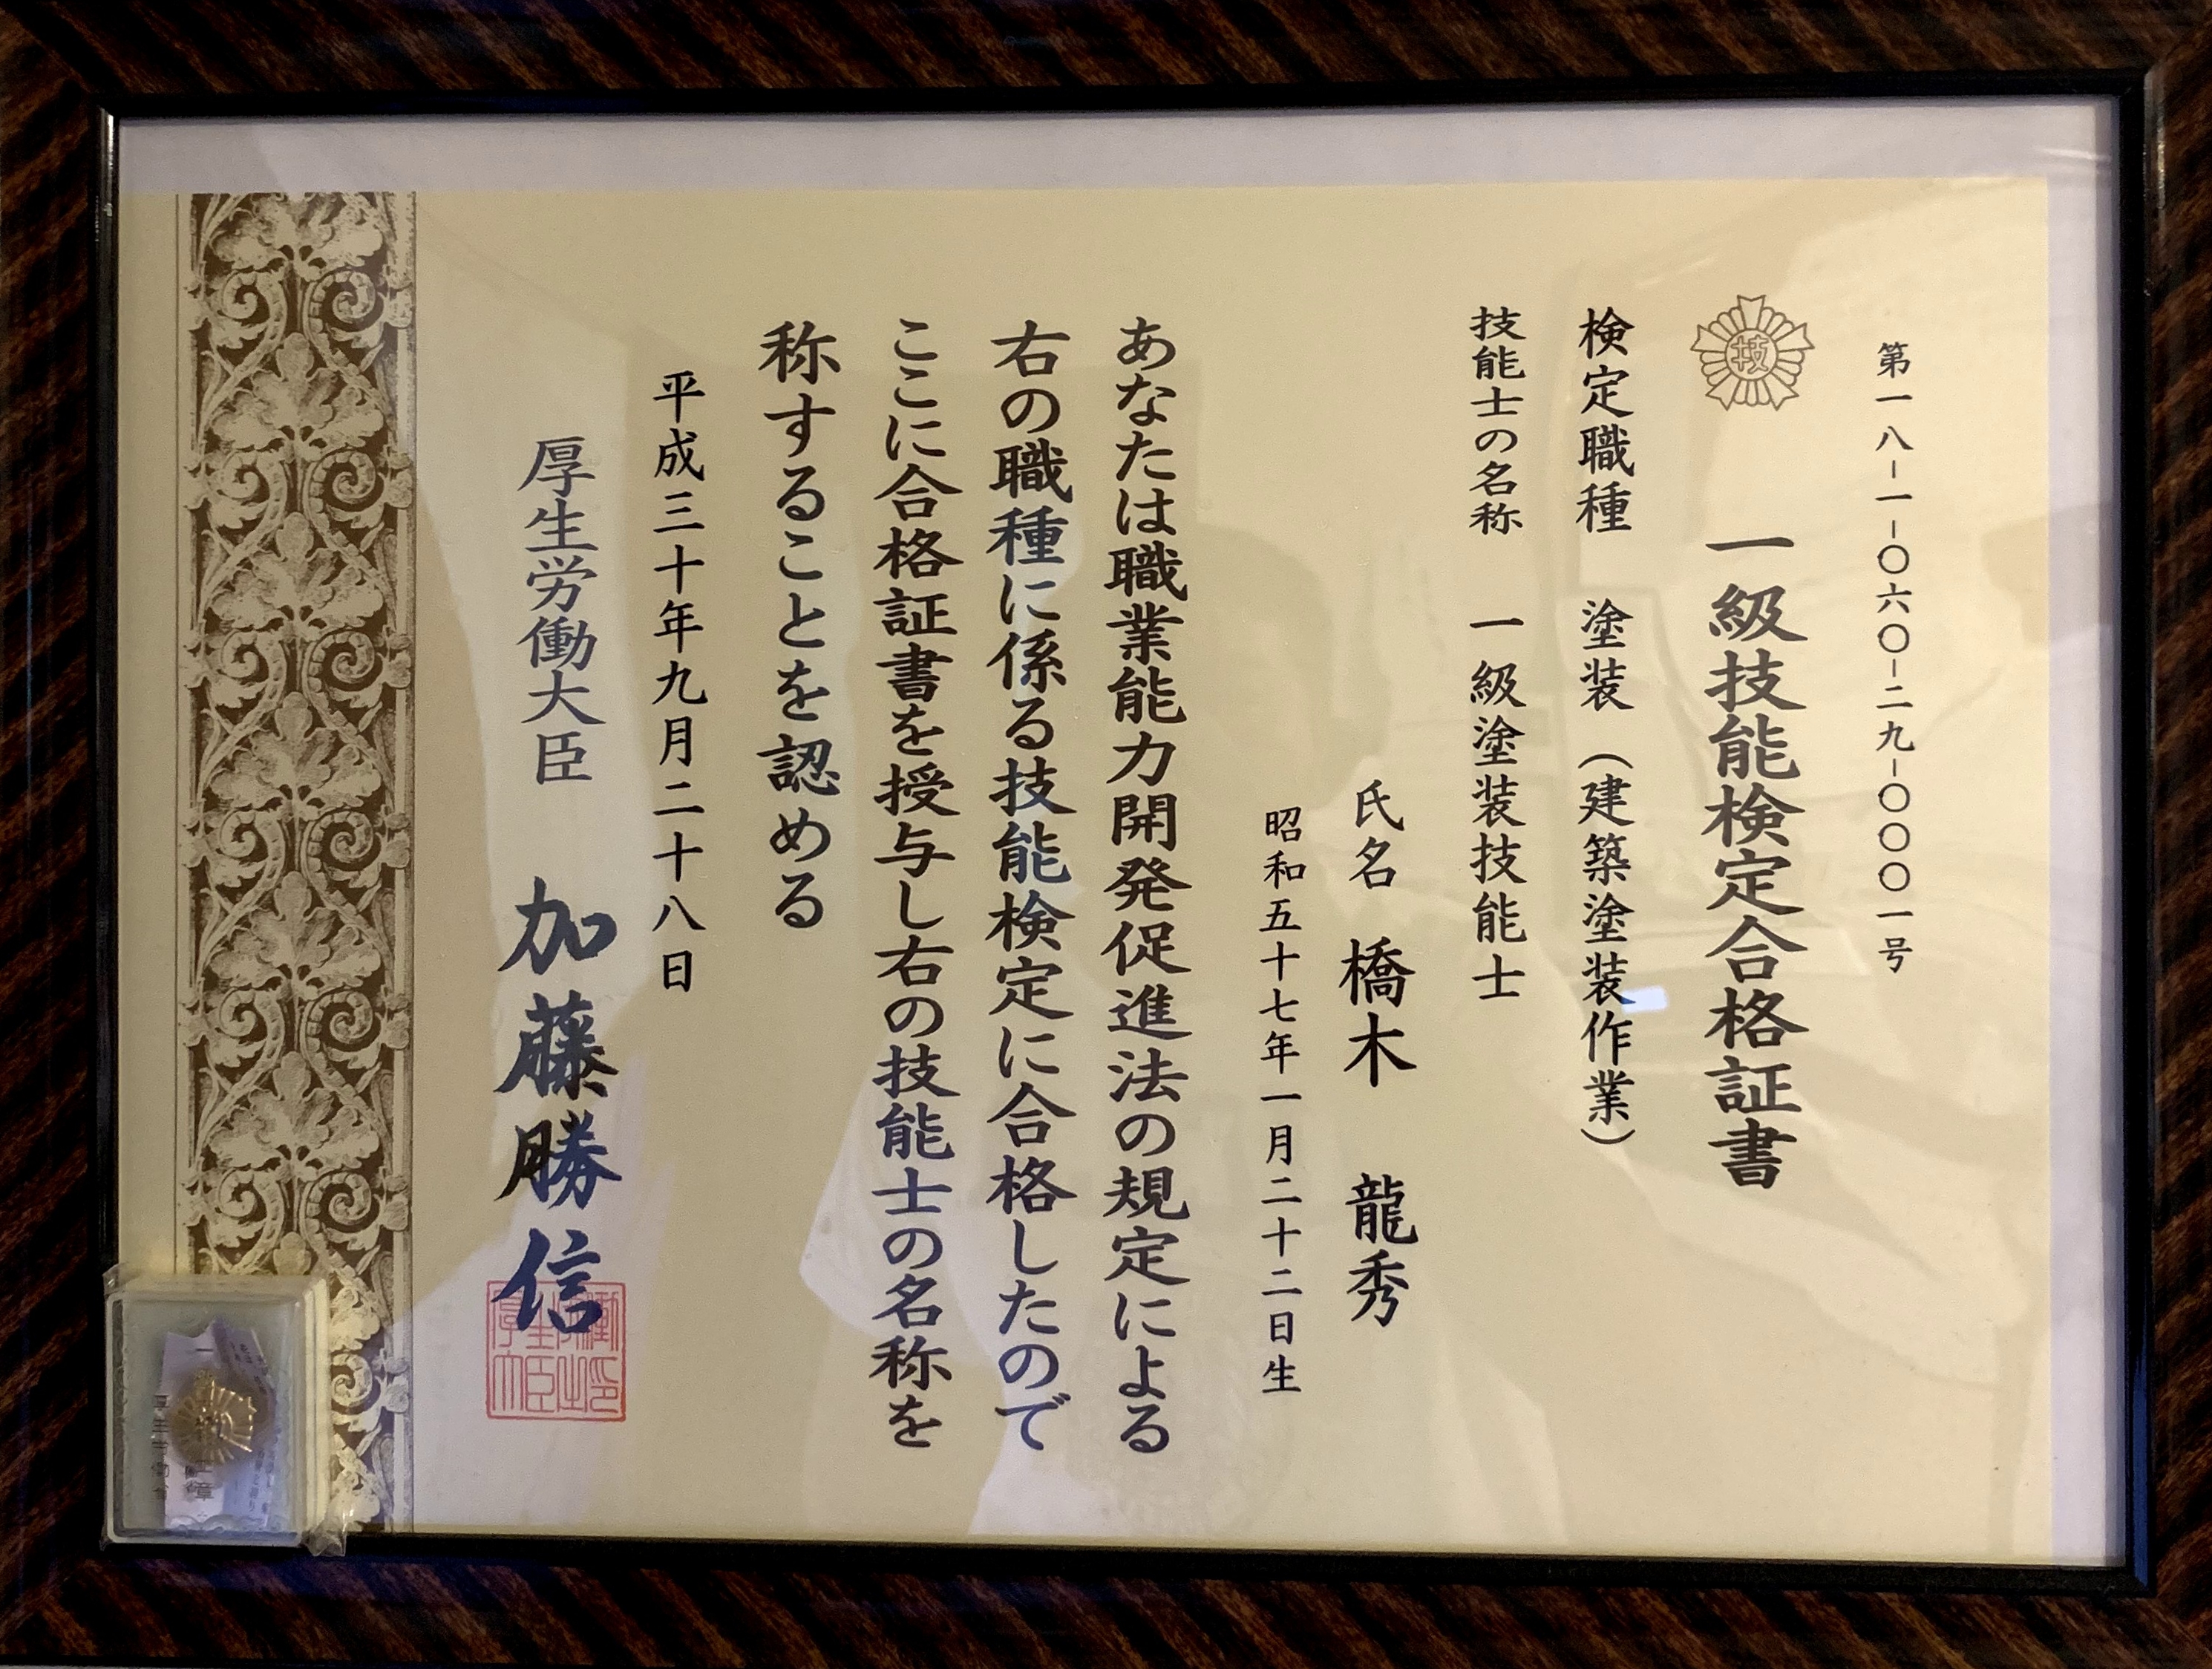 第一八-一-〇六〇-二九-〇〇〇一号
技
一級技能検定合格証書
検定職種 塗装（建築塗装作業）
技能士の名称 一級塗装技能士
氏名 橋木 龍秀
昭和五十七年一月二十二日生
あなたは職業能力開発促進法の規定による
右の職種に係る技能検定に合格したので
ここに合格証書を授与し右の技能士の名称を
称することを認める
平成三十年九月二十八日
厚生労働大臣 加藤勝信